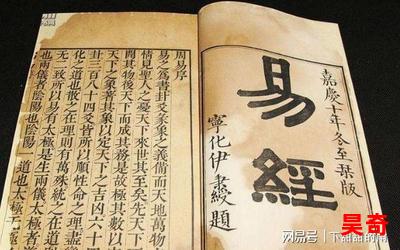 嘉慶十年冬至栞版
易經
寧化伊秉綬題
周易序
易之爲書卦爻彖象之義備而天地萬物
情見聖人之憂天下來世其至矣先天下
開其物後天下而成其務是故極其數以
天下之象著其象以定天下之吉凶六十
卦三百八十四爻皆所以順性命之理盡
化之道也散之在理則有萬殊統之在道
无二致所以易有太極是生兩儀太極
也兩儀者陰陽也陰陽一道也太極
昊奇
网易号